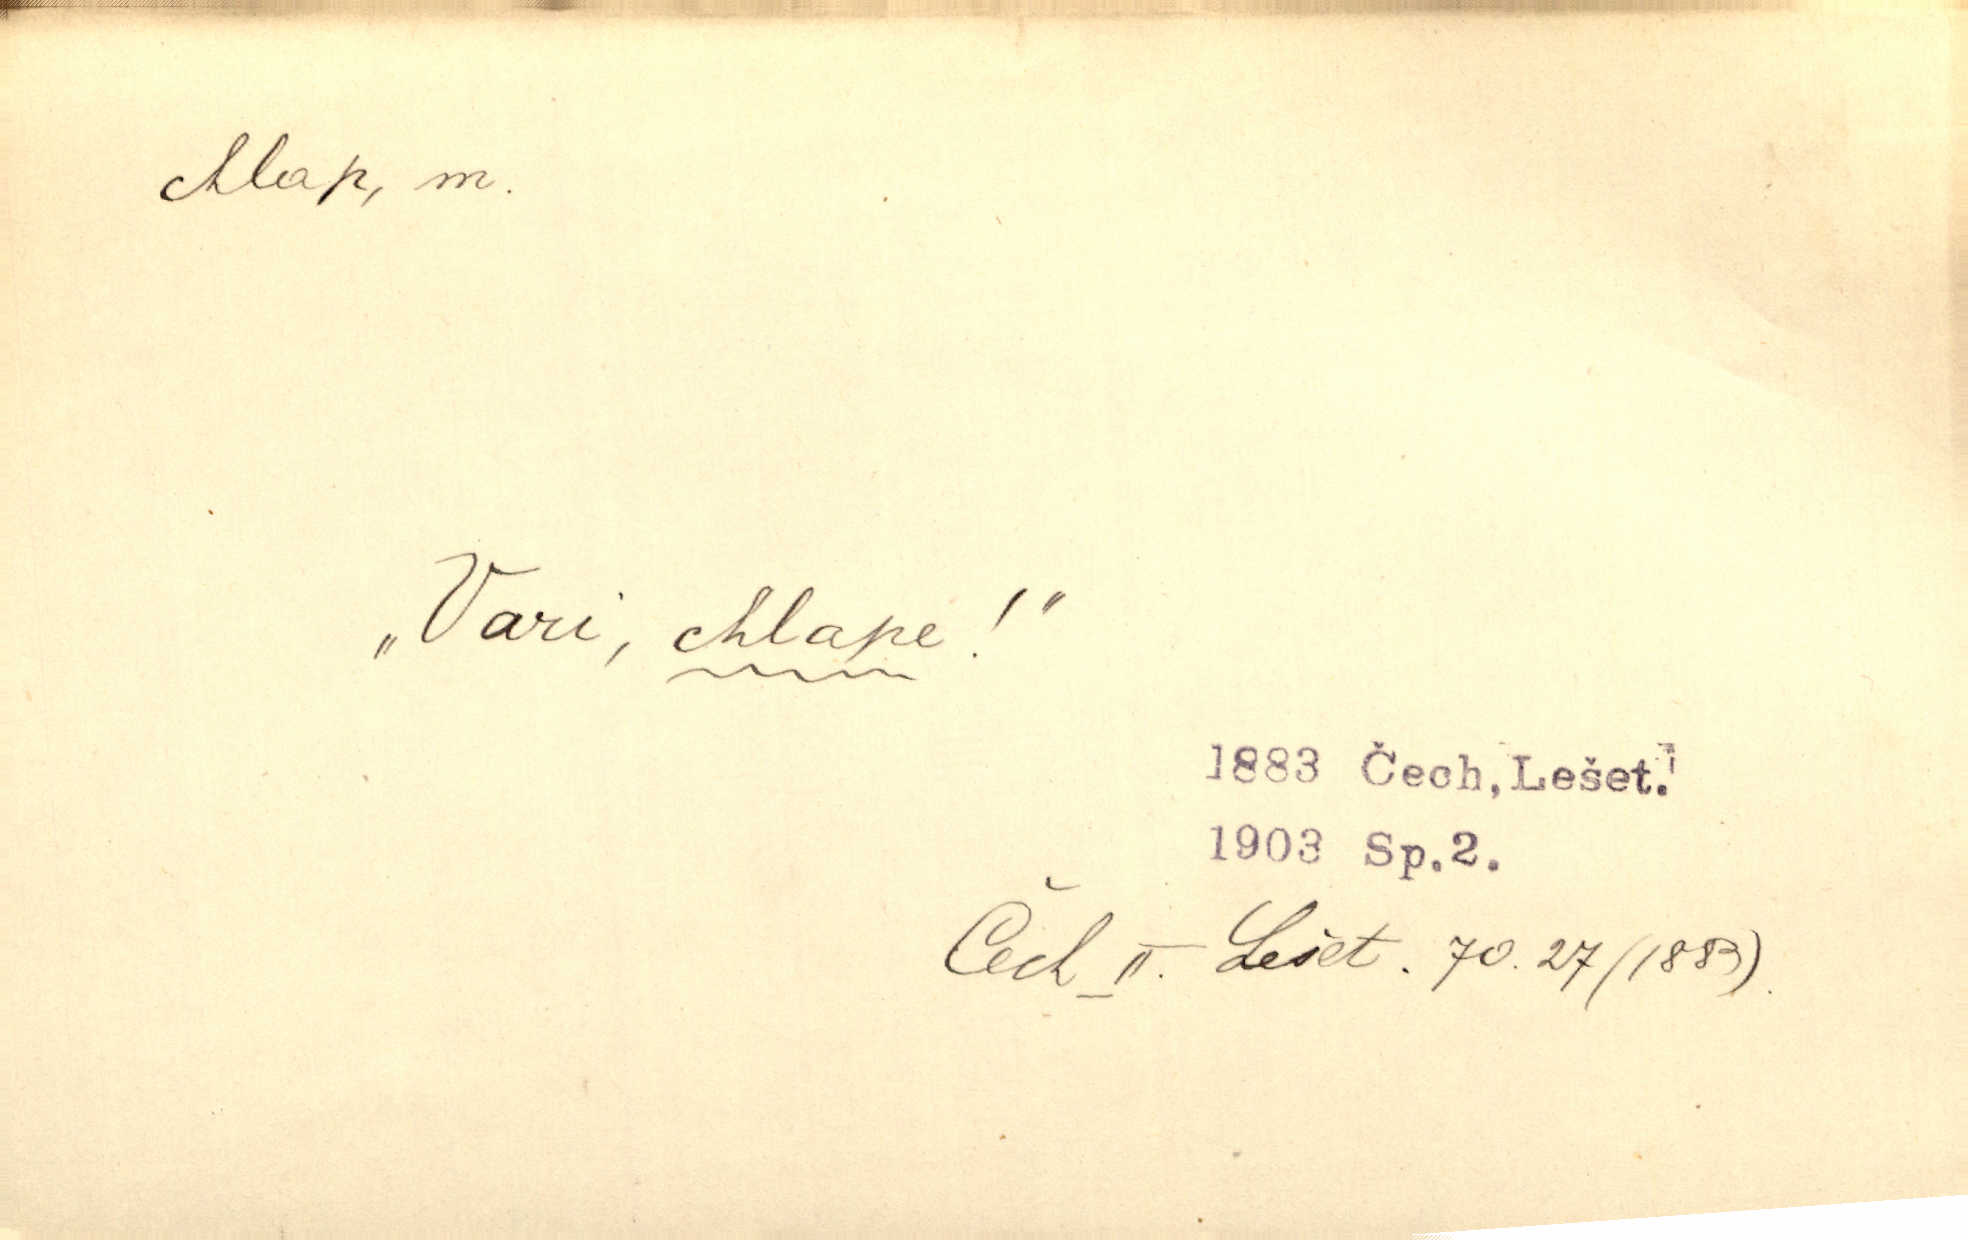 chlap, m.
„Vari, chlape!"
1883 Čech, Lešet.
1903 Sp.2.
Čech II. Lešet. 70. 27 (1883).